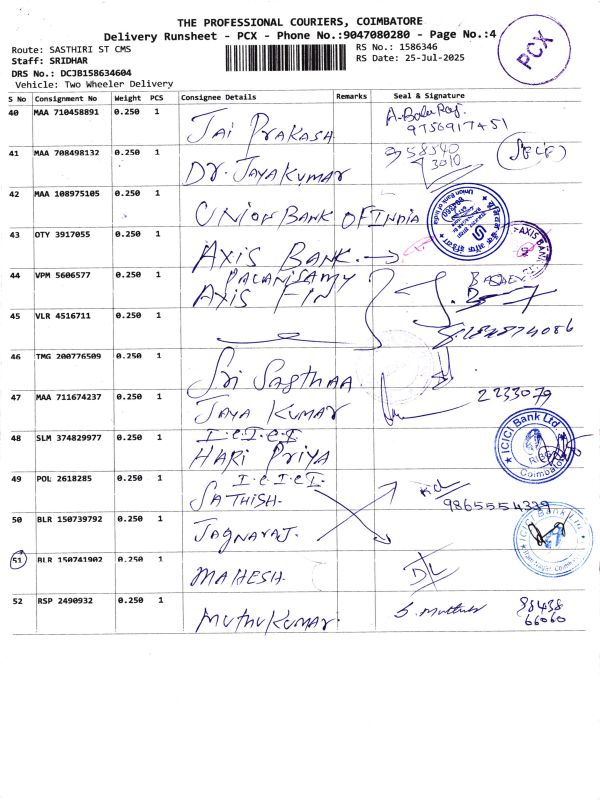 THE PROFESSIONAL COURIERS, COIMBATORE
Delivery Runsheet - PCX - Phone No.:9047080280 - Page No.:4
PCX
Route: SASTHIRI ST CMS
RS No.: 1586346
Staff: SRIDHAR
RS Date: 25-Jul-2025
DRS No.: DCJB158634604
Vehicle: Two Wheeler Delivery
S No Consignment No Weight PCS Consignee Details Remarks Seal & Signature
40 MAA 710458891 0.250 1 Jai Prakash A. Bala Raj
9756917451
41 MAA 708498132 0.250 1 Dr. Jayakumar 958540 (SELF)
3010
42 MAA 108975105 0.250 1 Union Bank Of India
43 OTY 3917055 0.250 1 Axis Bank. AXIS BANK
Palanisamy
44 VPM 5606577 0.250 1 Axis Fin
45 VLR 4516711 0.250 1
46 TMG 200776509 0.250 1 Sri Sasthaa
47 MAA 711674237 0.250 1 Jaya Kumar 2233079
I.C.I.C.I
48 SLM 374829977 0.250 1 Hari Priya ICICI Bank Ltd. Coimbatore
I.C.I.C.I.
49 POL 2618285 0.250 1 Sathish.
50 BLR 150739792 0.250 1 Jagnaraj. ICICI Bank Ltd
51 BLR 150741902 0.250 1 Mahesh. D/L
52 RSP 2490932 0.250 1 Muthukumar 98438
66060